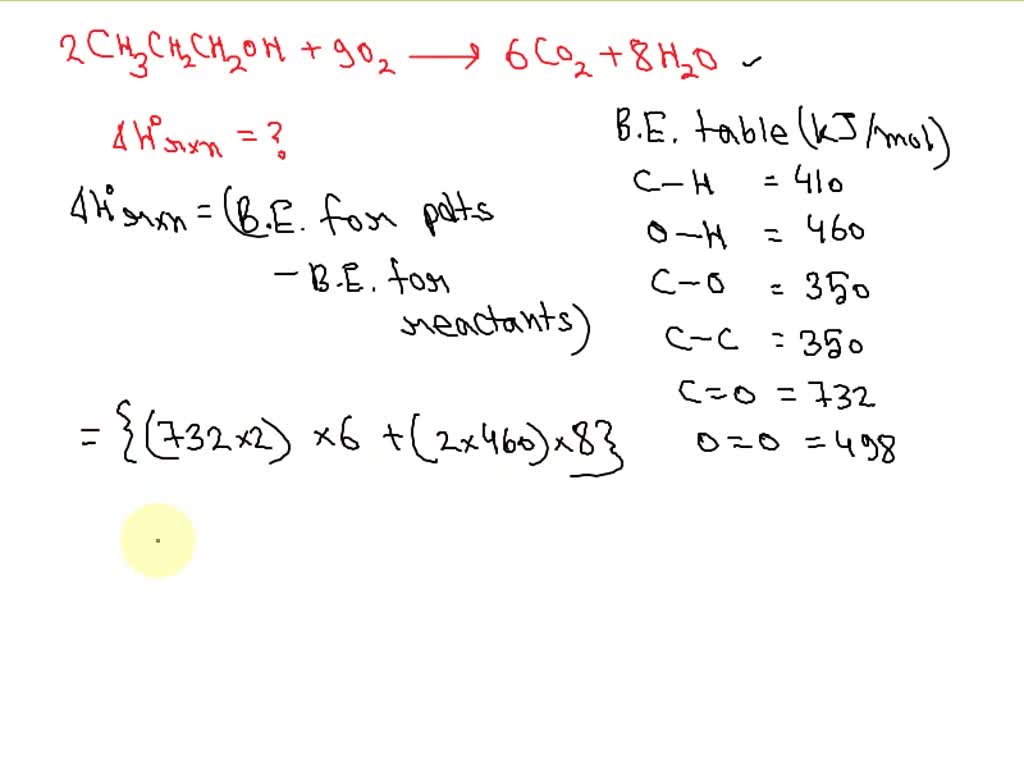 2CH₃CH₂CH₂OH + 9O₂ ⟶ 6CO₂ + 8H₂O ✓
ΔH°rxn = ?
ΔH°rxn = (B.E. for pdts
− B.E. for
reactants)
= {(732×2) ×6 + (2×460)×8}
B.E. table (kJ/mol)
C−H = 410
O−H = 460
C−O = 350
C−C = 350
C=O = 732
O=O = 498